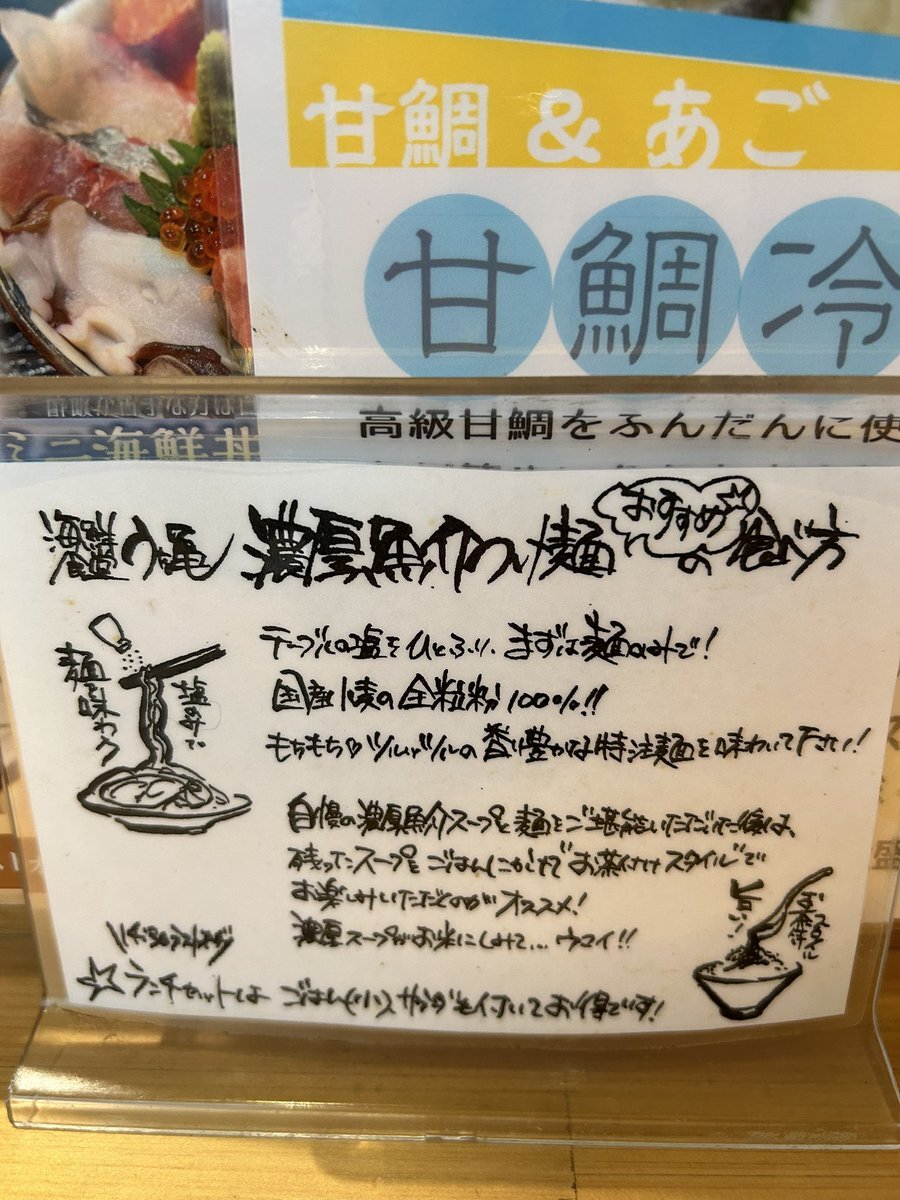 甘鯛 & あご
甘鯛冷
高級甘鯛をふんだんに使
ミニ海鮮丼
濃厚魚介つけ麺 おすすめの食べ方
テーブルの塩をひとふり、まずは麺のみで!
国産小麦の全粒粉100%!!
もちもちツルッツルの香り豊かな特注麺を味わって下さい!
麺を味わう
塩のみで
自慢の濃厚魚介スープと麺をご堪能いただいた後は、
残ったスープをごはんにかけて"お茶付けスタイル"で
お楽しみいただくのがオススメ!
濃厚スープがお米にしみて...ウマイ!!
旨い!
お茶付けスタイル
☆ランチセットは ごはん(小)
も付いてお得です!